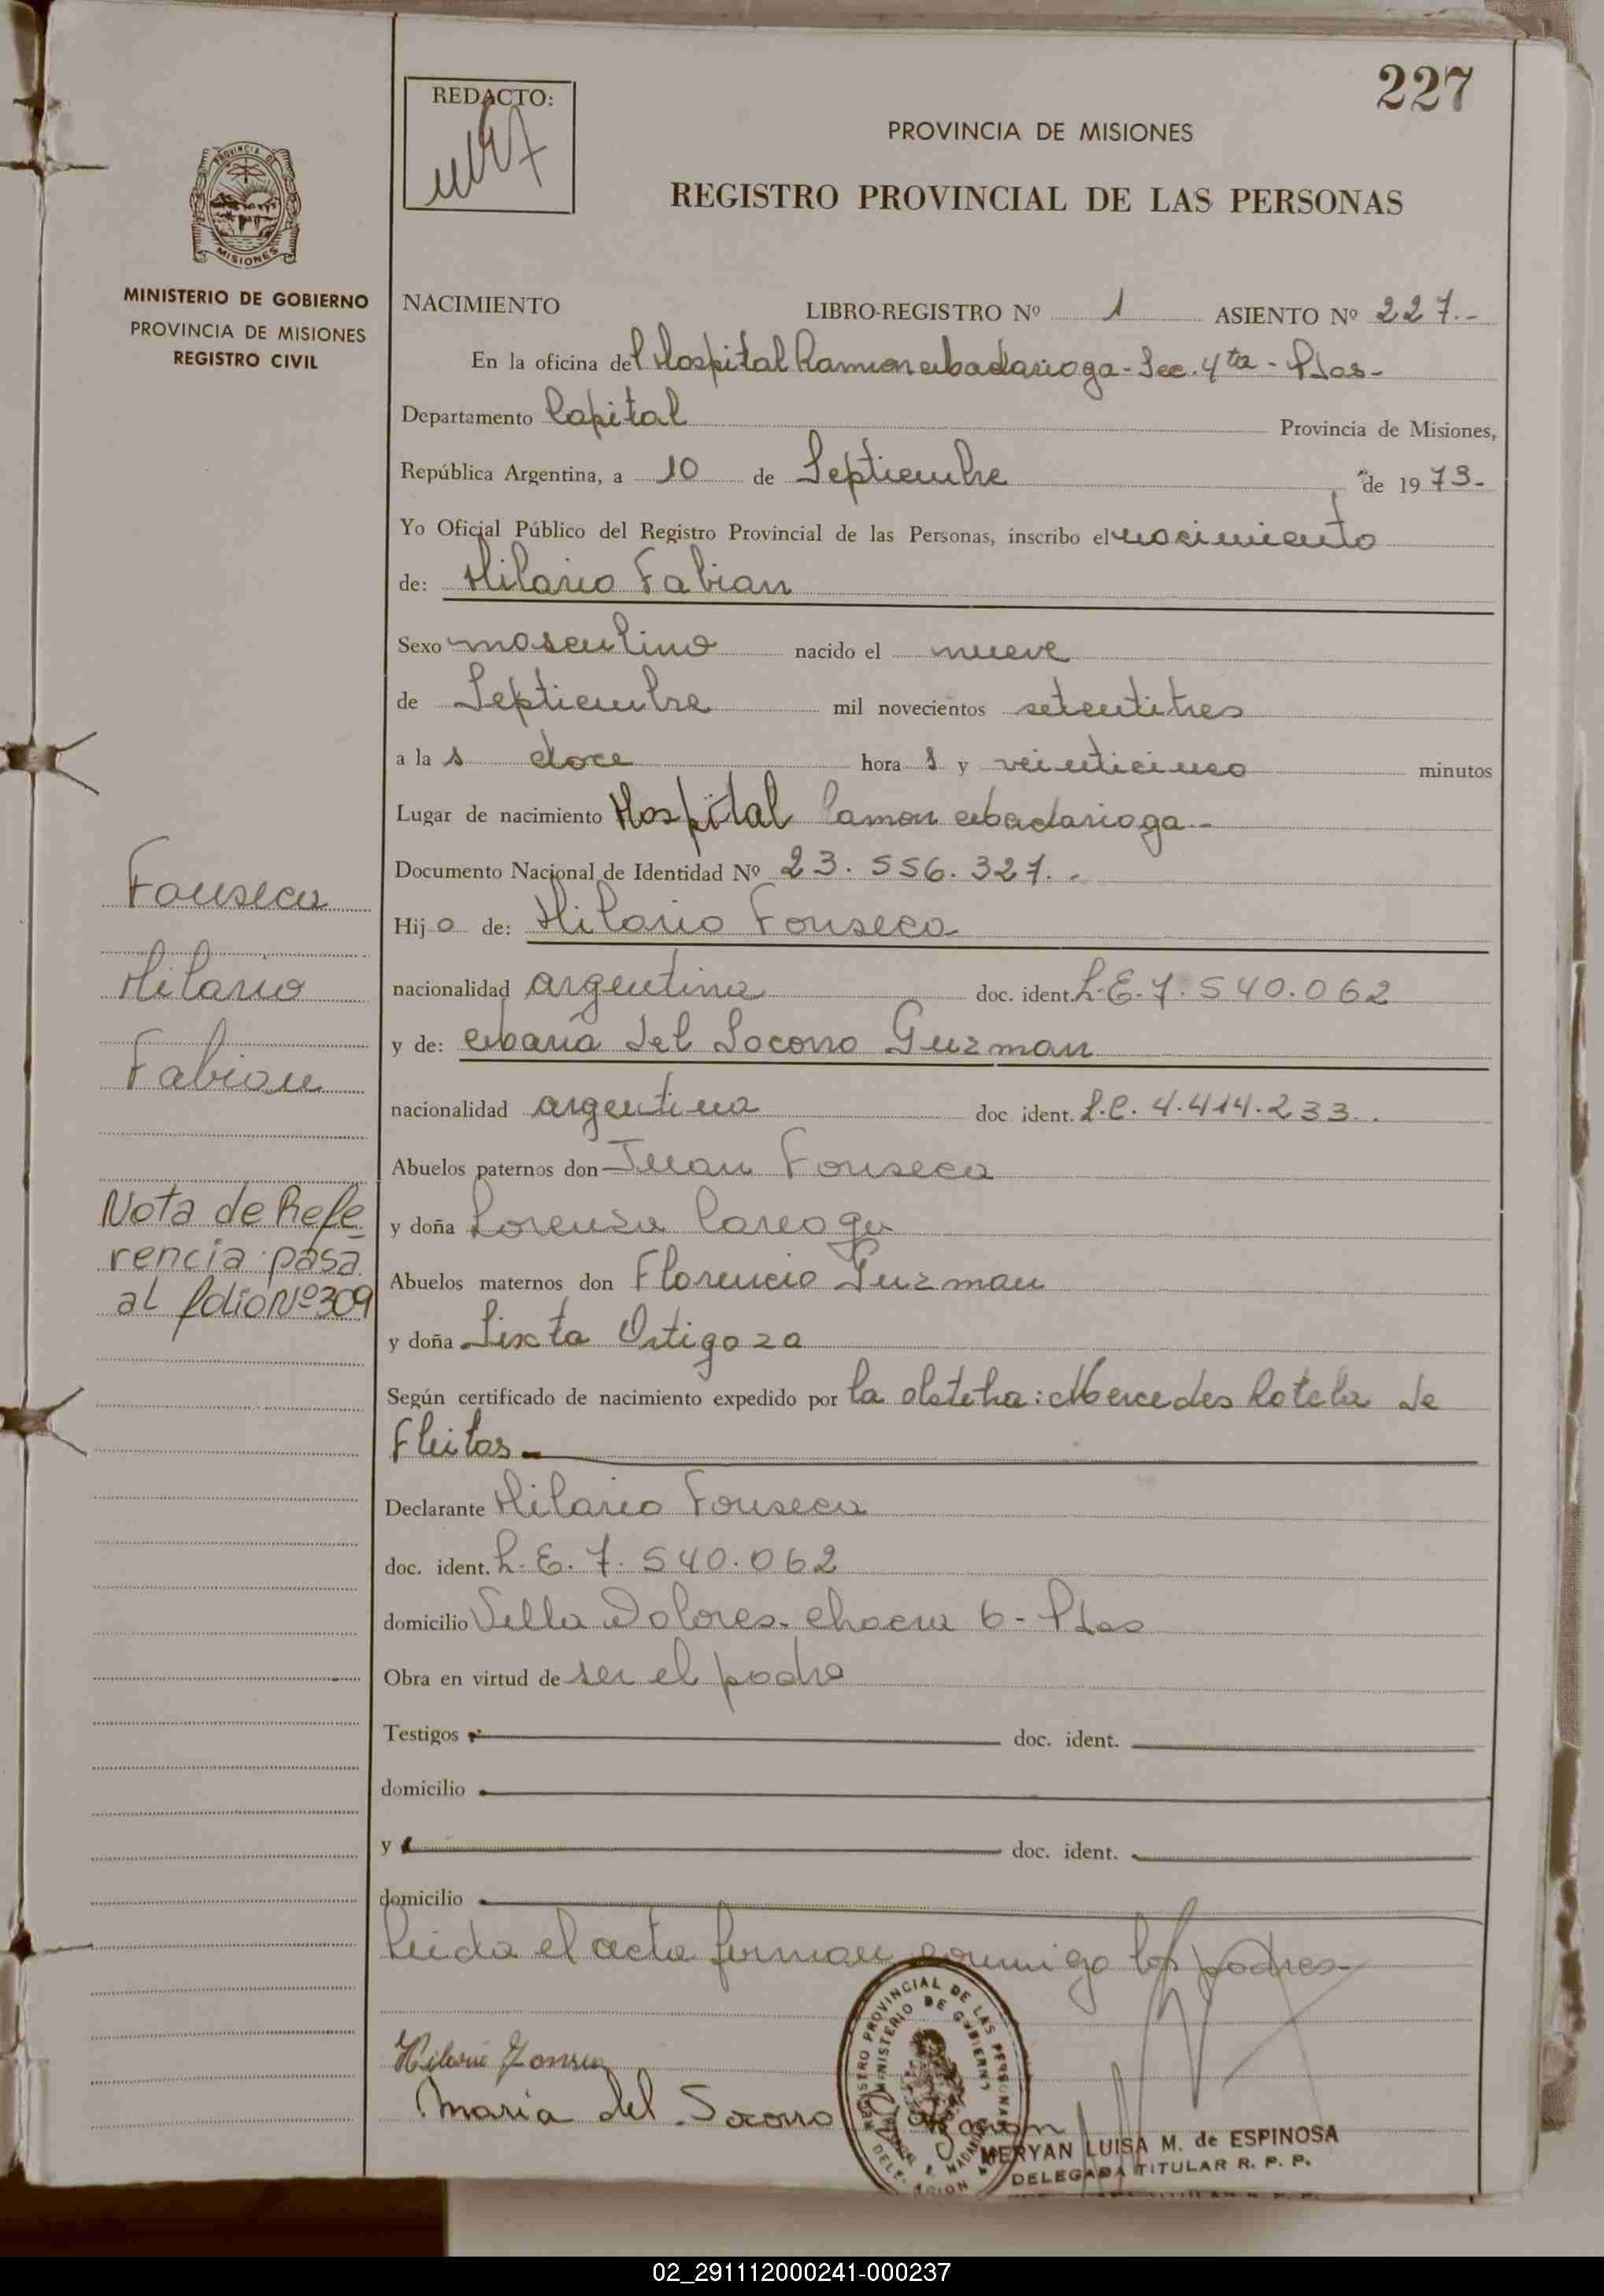 227
REDACTO:
PROVINCIA DE MISIONES
REGISTRO PROVINCIAL DE LAS PERSONAS
PROVINCIA DE
MISIONES
MINISTERIO DE GOBIERNO
PROVINCIA DE MISIONES
REGISTRO CIVIL
NACIMIENTO LIBRO-REGISTRO Nº 1 ASIENTO Nº 227.-
En la oficina del Hospital Ramon Madariaga - Sec. 4ta - Pdas-
Departamento Capital Provincia de Misiones,
República Argentina, a 10 de Septiembre de 1973.-
Yo Oficial Público del Registro Provincial de las Personas, inscribo el nacimiento
de: Hilario Fabian
Sexo masculino nacido el nueve
de Septiembre mil novecientos setentitres
a las doce horas y veinticinco minutos
Lugar de nacimiento Hospital Ramon Madariaga-
Documento Nacional de Identidad Nº 23.556.327.-
Hijo de: Hilario Fonseca
nacionalidad argentina doc. ident. L.E. 7.540.062
y de: Maria del Socorro Guzman
nacionalidad argentina doc. ident. L.C. 4.414.233.-
Abuelos paternos don Juan Fonseca
y doña Lorenza
Abuelos maternos don Florencio Guzman
y doña Sixta Ortigoza
Según certificado de nacimiento expedido por la obstetra: Mercedes Rotela de
Fleitas-
Declarante Hilario Fonseca
doc. ident. L.E. 7.540.062
domicilio Villa Dolores- chacra 6 - Pdas
Obra en virtud de ser el padre
Testigos doc. ident.
domicilio
y doc. ident.
domicilio
Leida el acta firman conmigo los padres-
Hilario Fonseca
Maria del Socorro Guzman
REGISTRO PROVINCIAL DE LAS PERSONAS
MINISTERIO DE GOBIERNO
MERYAN LUISA M. de ESPINOSA
DELEGADA TITULAR R. P. P.
Fonseca
Hilario
Fabian
Nota de Refe
rencia pasa
al folio Nº 309
02_291112000241-000237